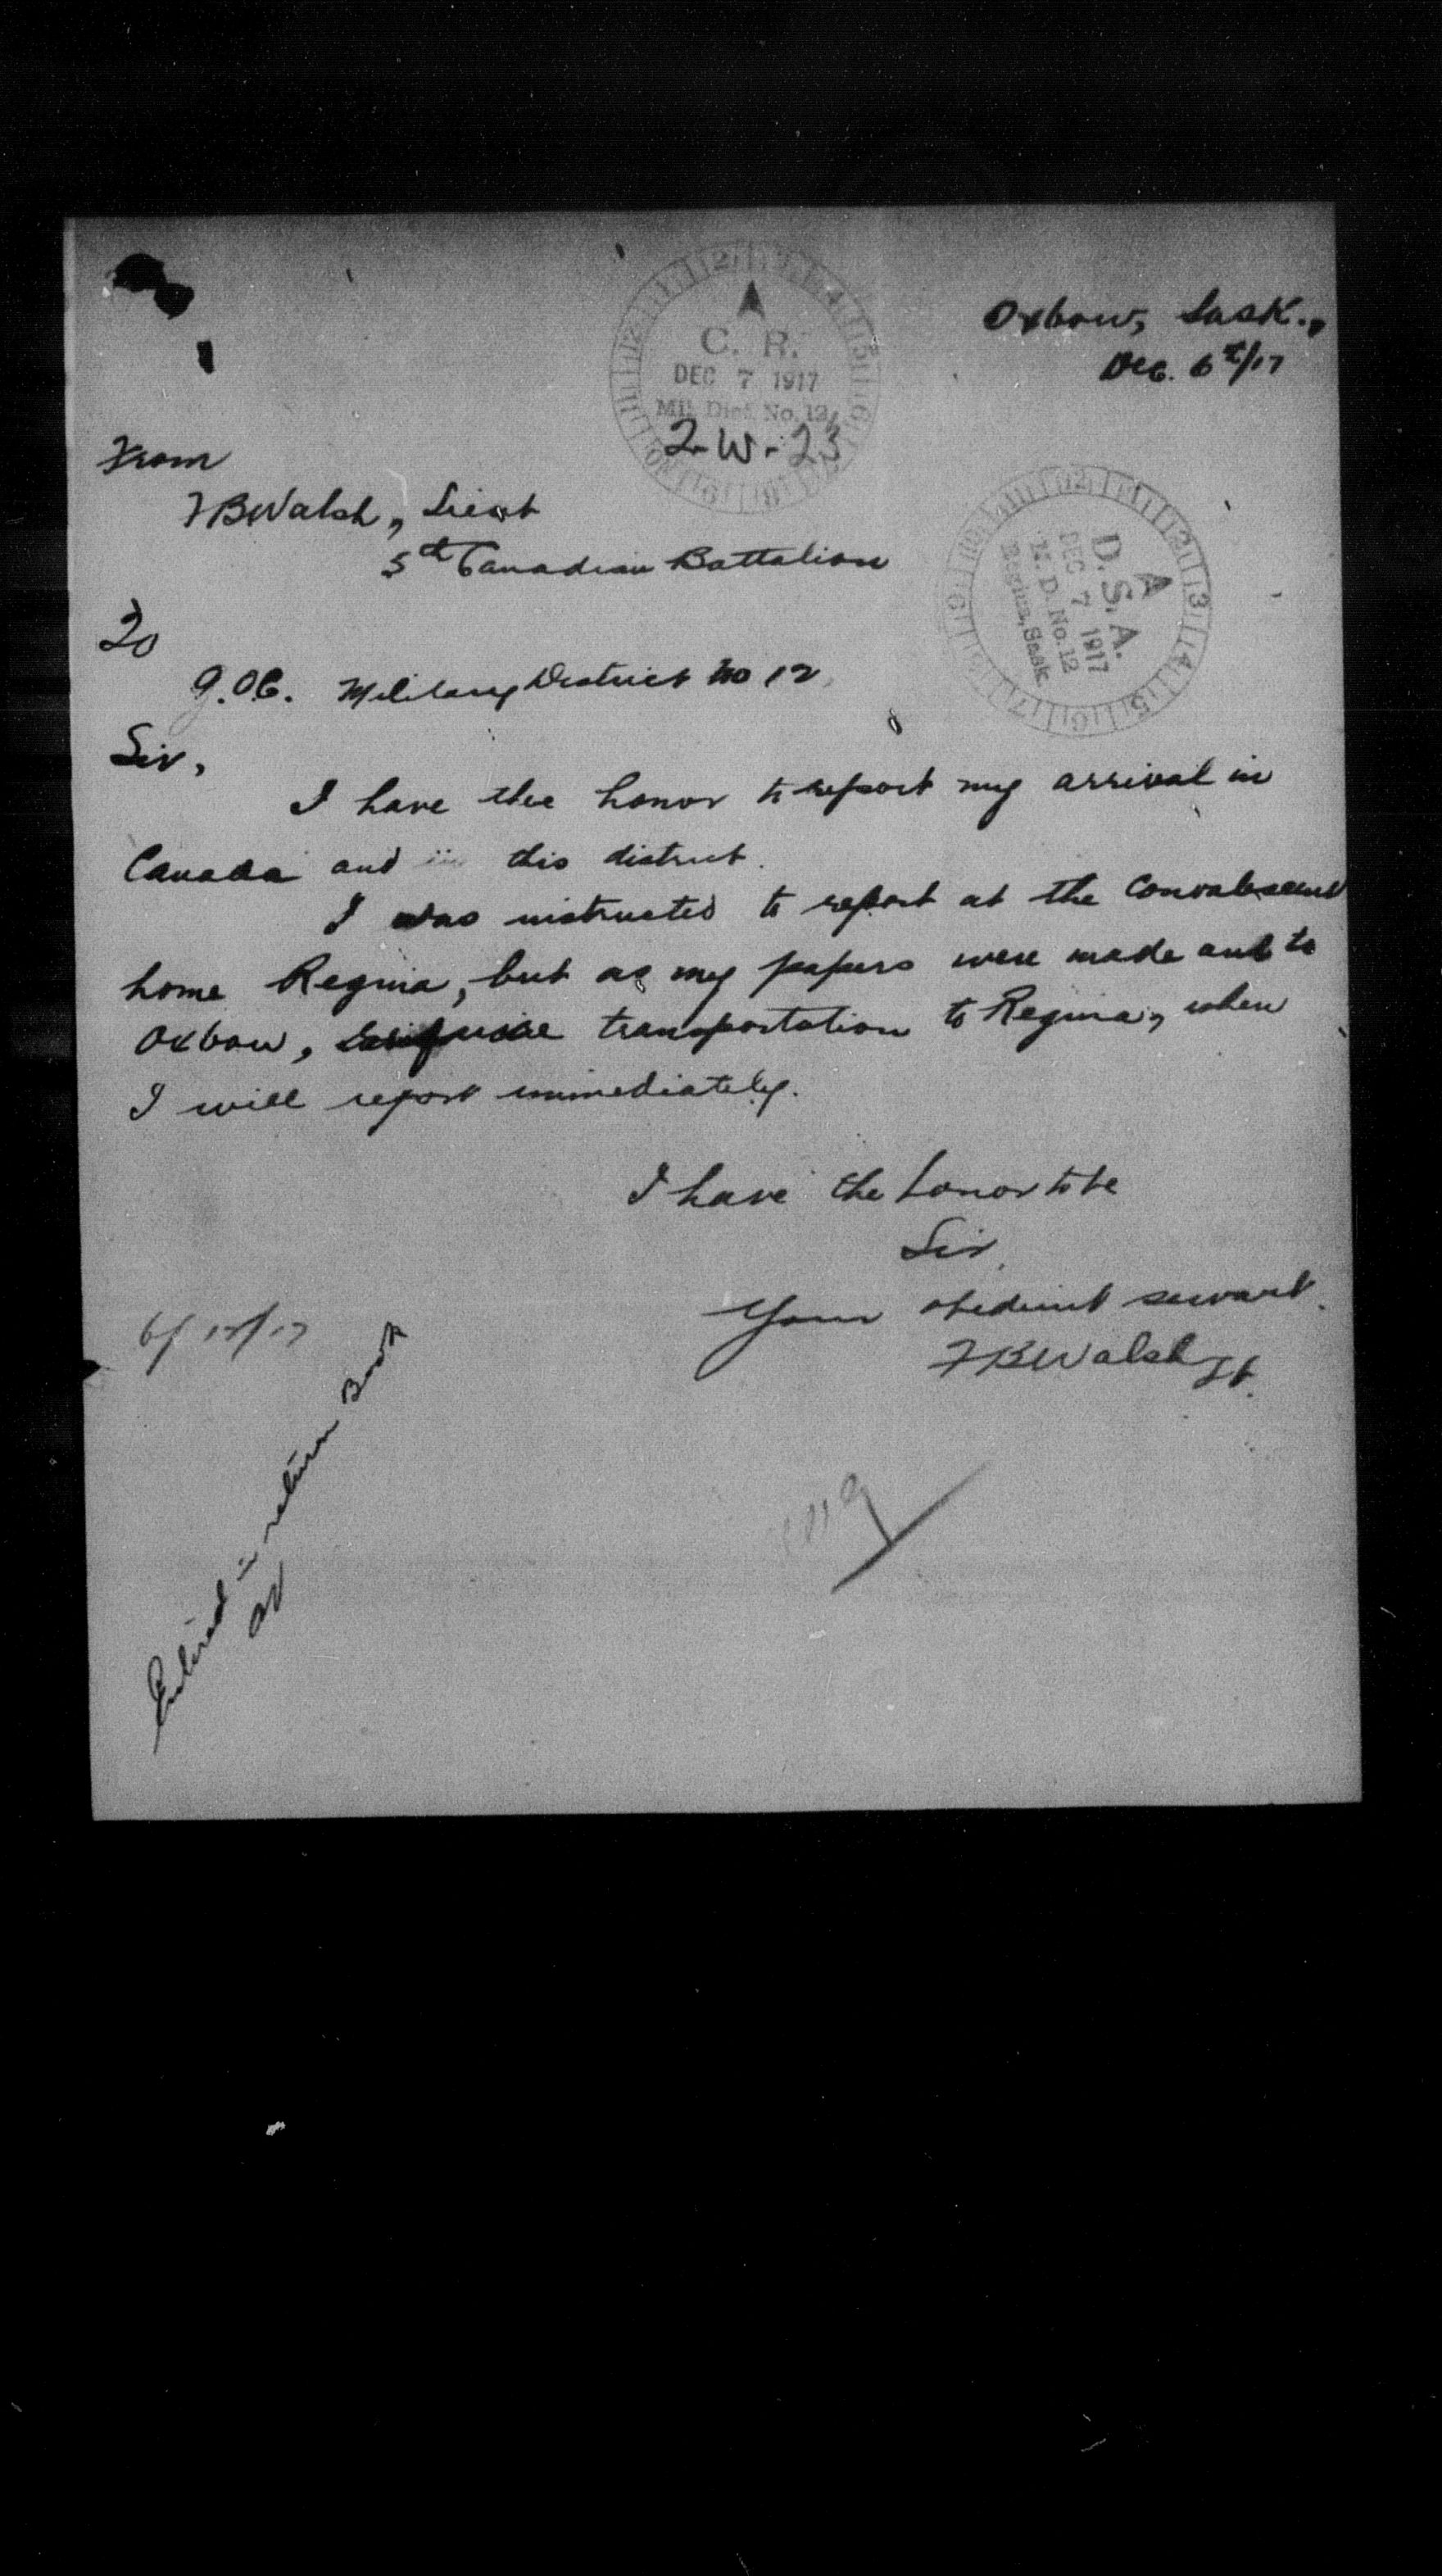 Oxbow, Sask.,
Dec. 6th/17
C. R.
DEC 7 1917
Mil. Dist. No. 12
2-W-23
From
F B Walsh, Lieut
5th Canadian Battalion
A
D. S. A.
DEC 7 1917
M. D. No. 12
Regina, Sask.
To
G.O.C. Military District No 12
Sir,
I have the honor to report my arrival in
Canada and in this district.
I was instructed to report at the Convalescent
home Regina, but as my papers were made out to
Oxbow, I require transportation to Regina, when
I will report immediately.
I have the honor to be
Sir,
Your obedient servant.
F B Walsh Lt.
Entered in return Book